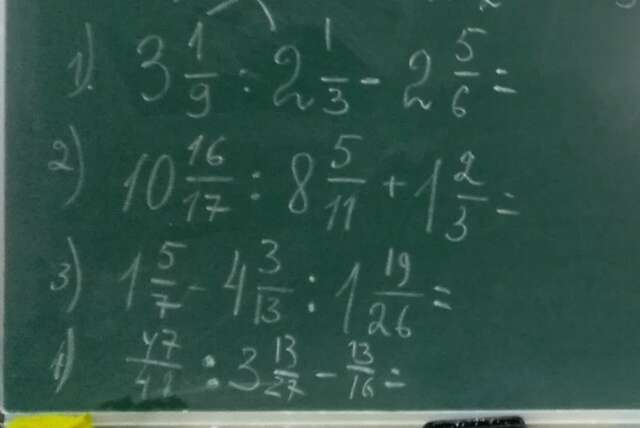 1). 3 1/9 : 2 1/3 - 2 5/6 =
2) 10 16/17 : 8 5/11 + 1 2/3 =
3) 1 5/7 - 4 3/13 : 1 19/26 =
4) 47/48 : 3 13/27 - 13/16 =